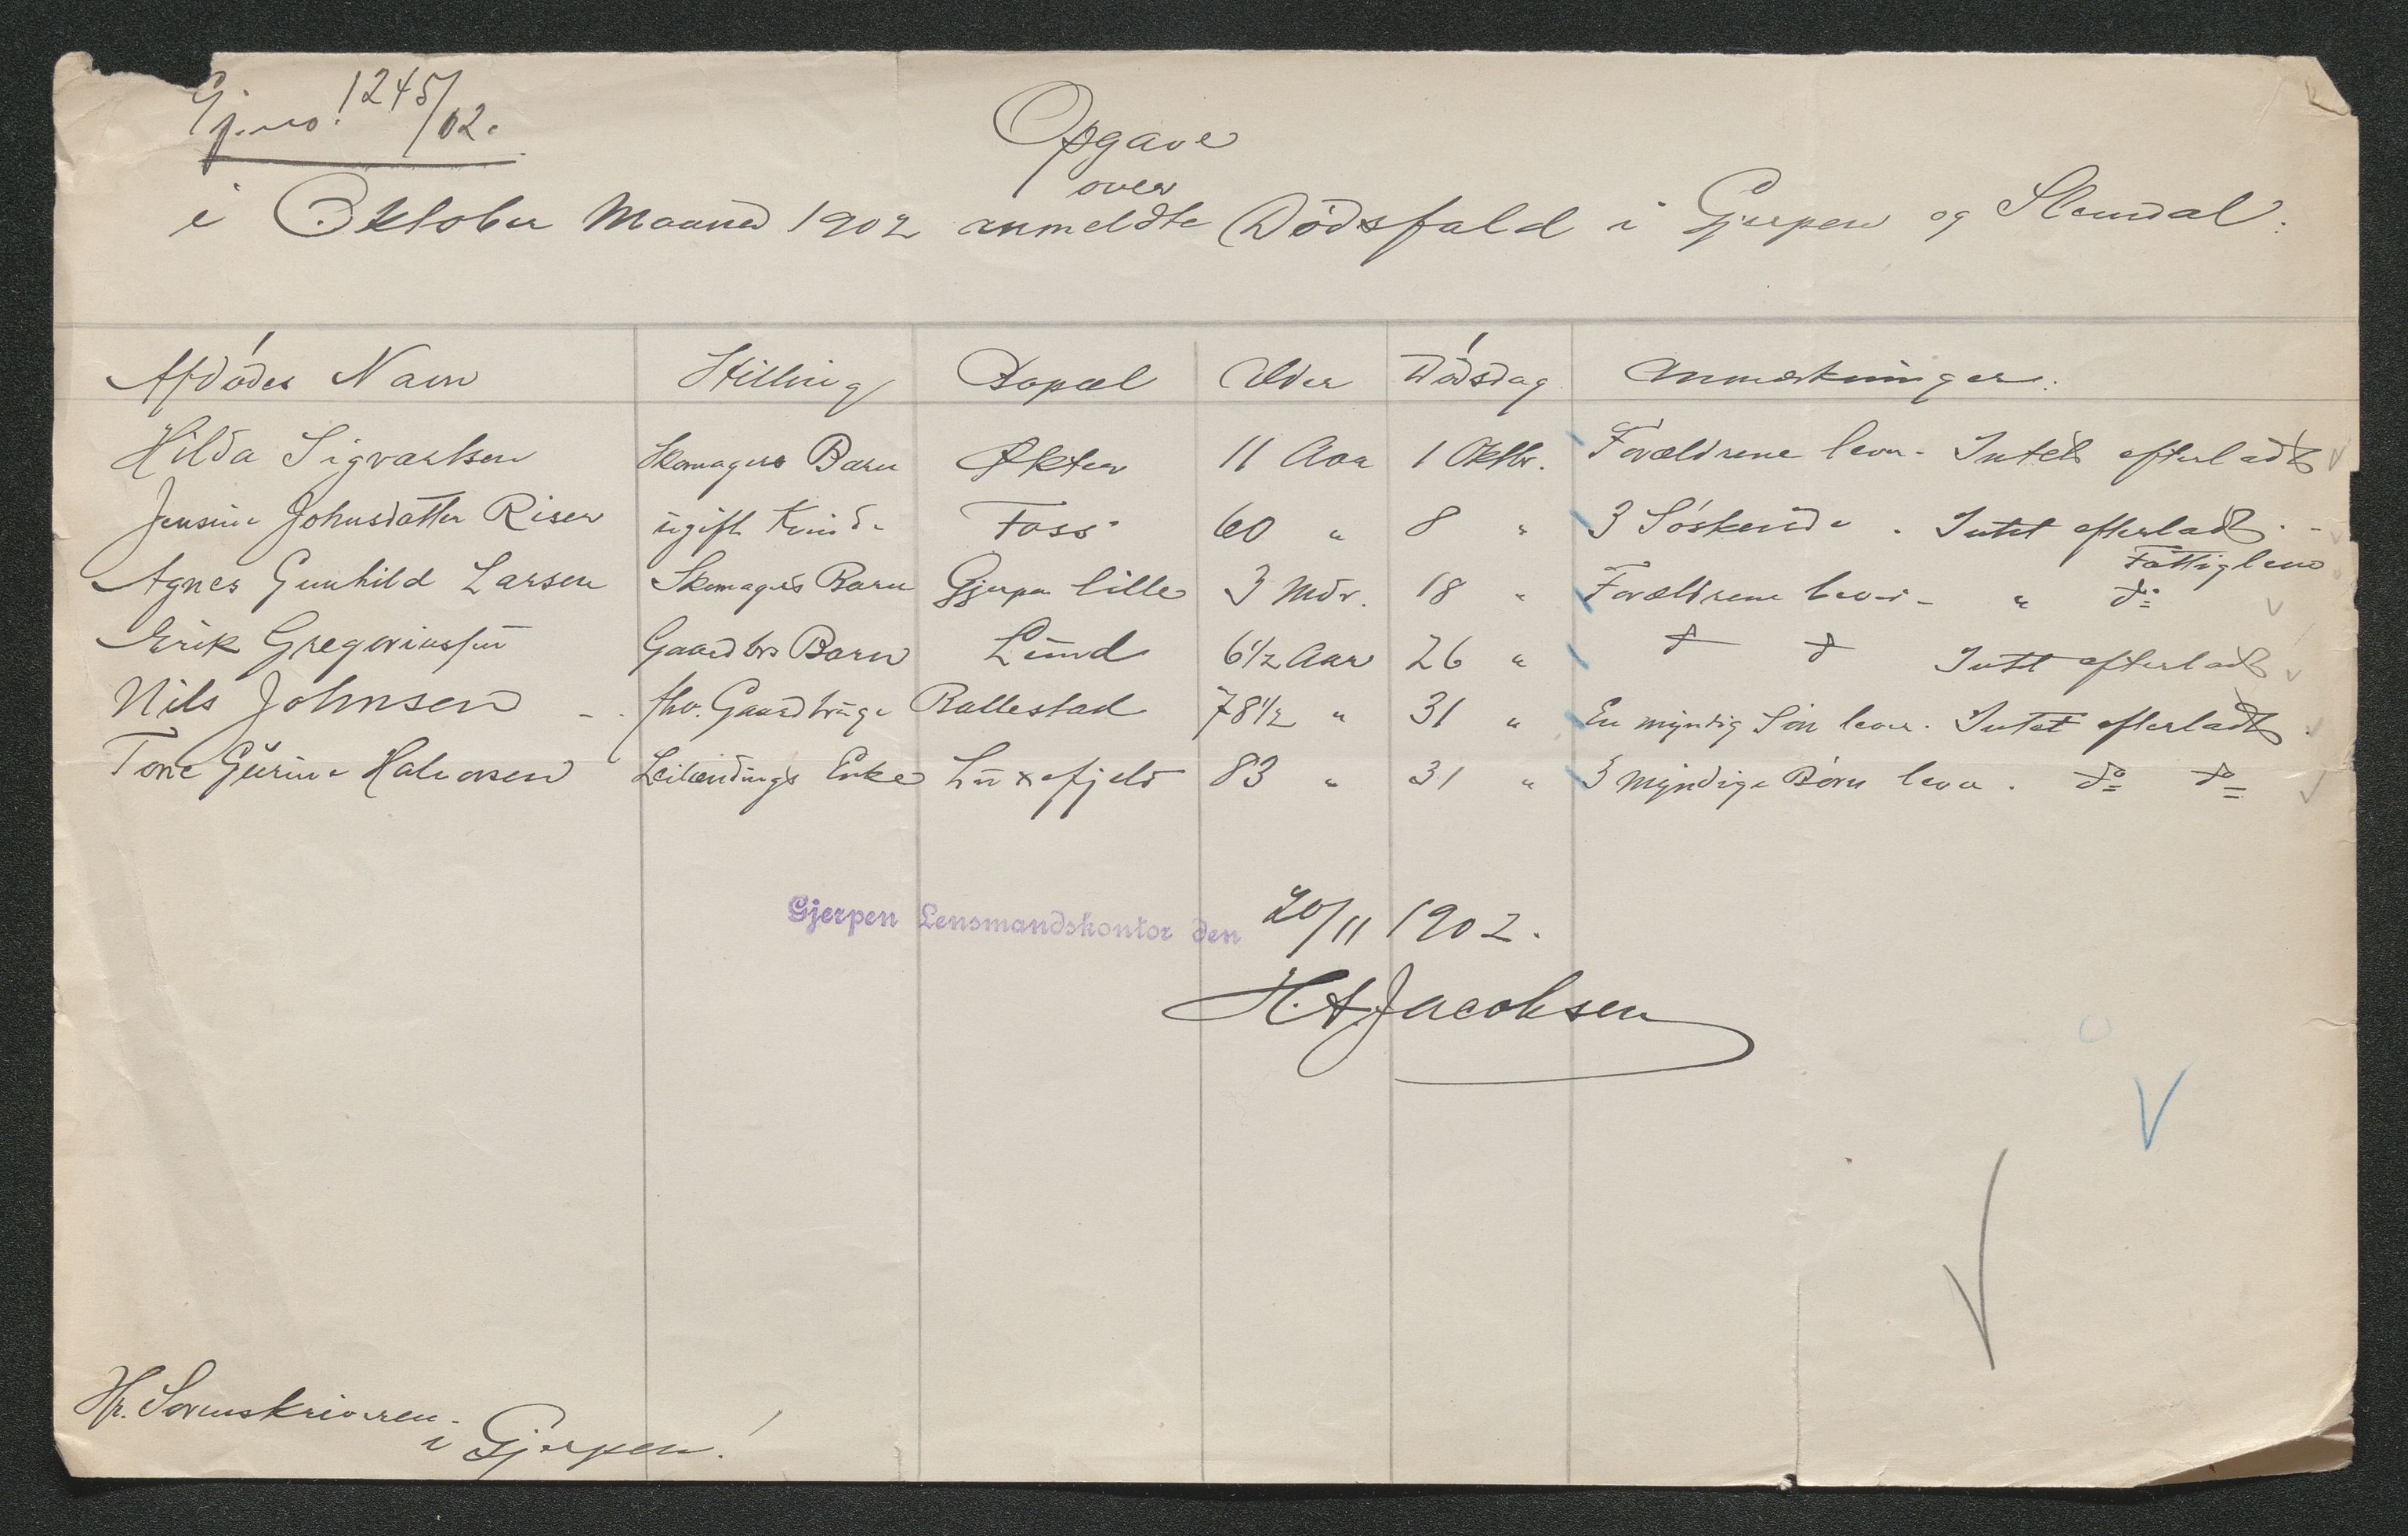 Gj. no. 1245/02.
Opgave
over
i Oktober Maaned 1902 anmeldte Dödsfald i Gjerpen og Slemdal.
Afdödes Navn Stilling Bopæl Alder Dödsdag Anmærkninger.
Hilda Sigvartsen Skomagers Barn Økter 11 Aar 1 Oktbr. Forældrene lever. Intet efterladt
Jensine Johnsdatter Riser ugift Kvinde Foss 60 " 8 " 3 Söskende. Intet efterladt. -
Fattiglem
Agnes Gunhild Larsen Skomagers Barn Gjerpen lille 3 Mdr. 18 " Forældrene lever - " do
Erik Gregoriussen Gaardbrs Barn Lund 6½ Aar 26 " d d Intet efterladt
Nils Johnsen - fhv. Gaardbruger Ballestad 78½ " 31 " En myndig Sön lever. Intet efterladt.
Tone Gurine Halvorsen Leilændings Enke Luxefjeld 83 " 31 " 3 myndige Börn lever. do do
Gjerpen Lensmandskontor den 20/11 1902.
H. A. Jacobsen
Hr. Sorenskriveren
i Gjerpen!